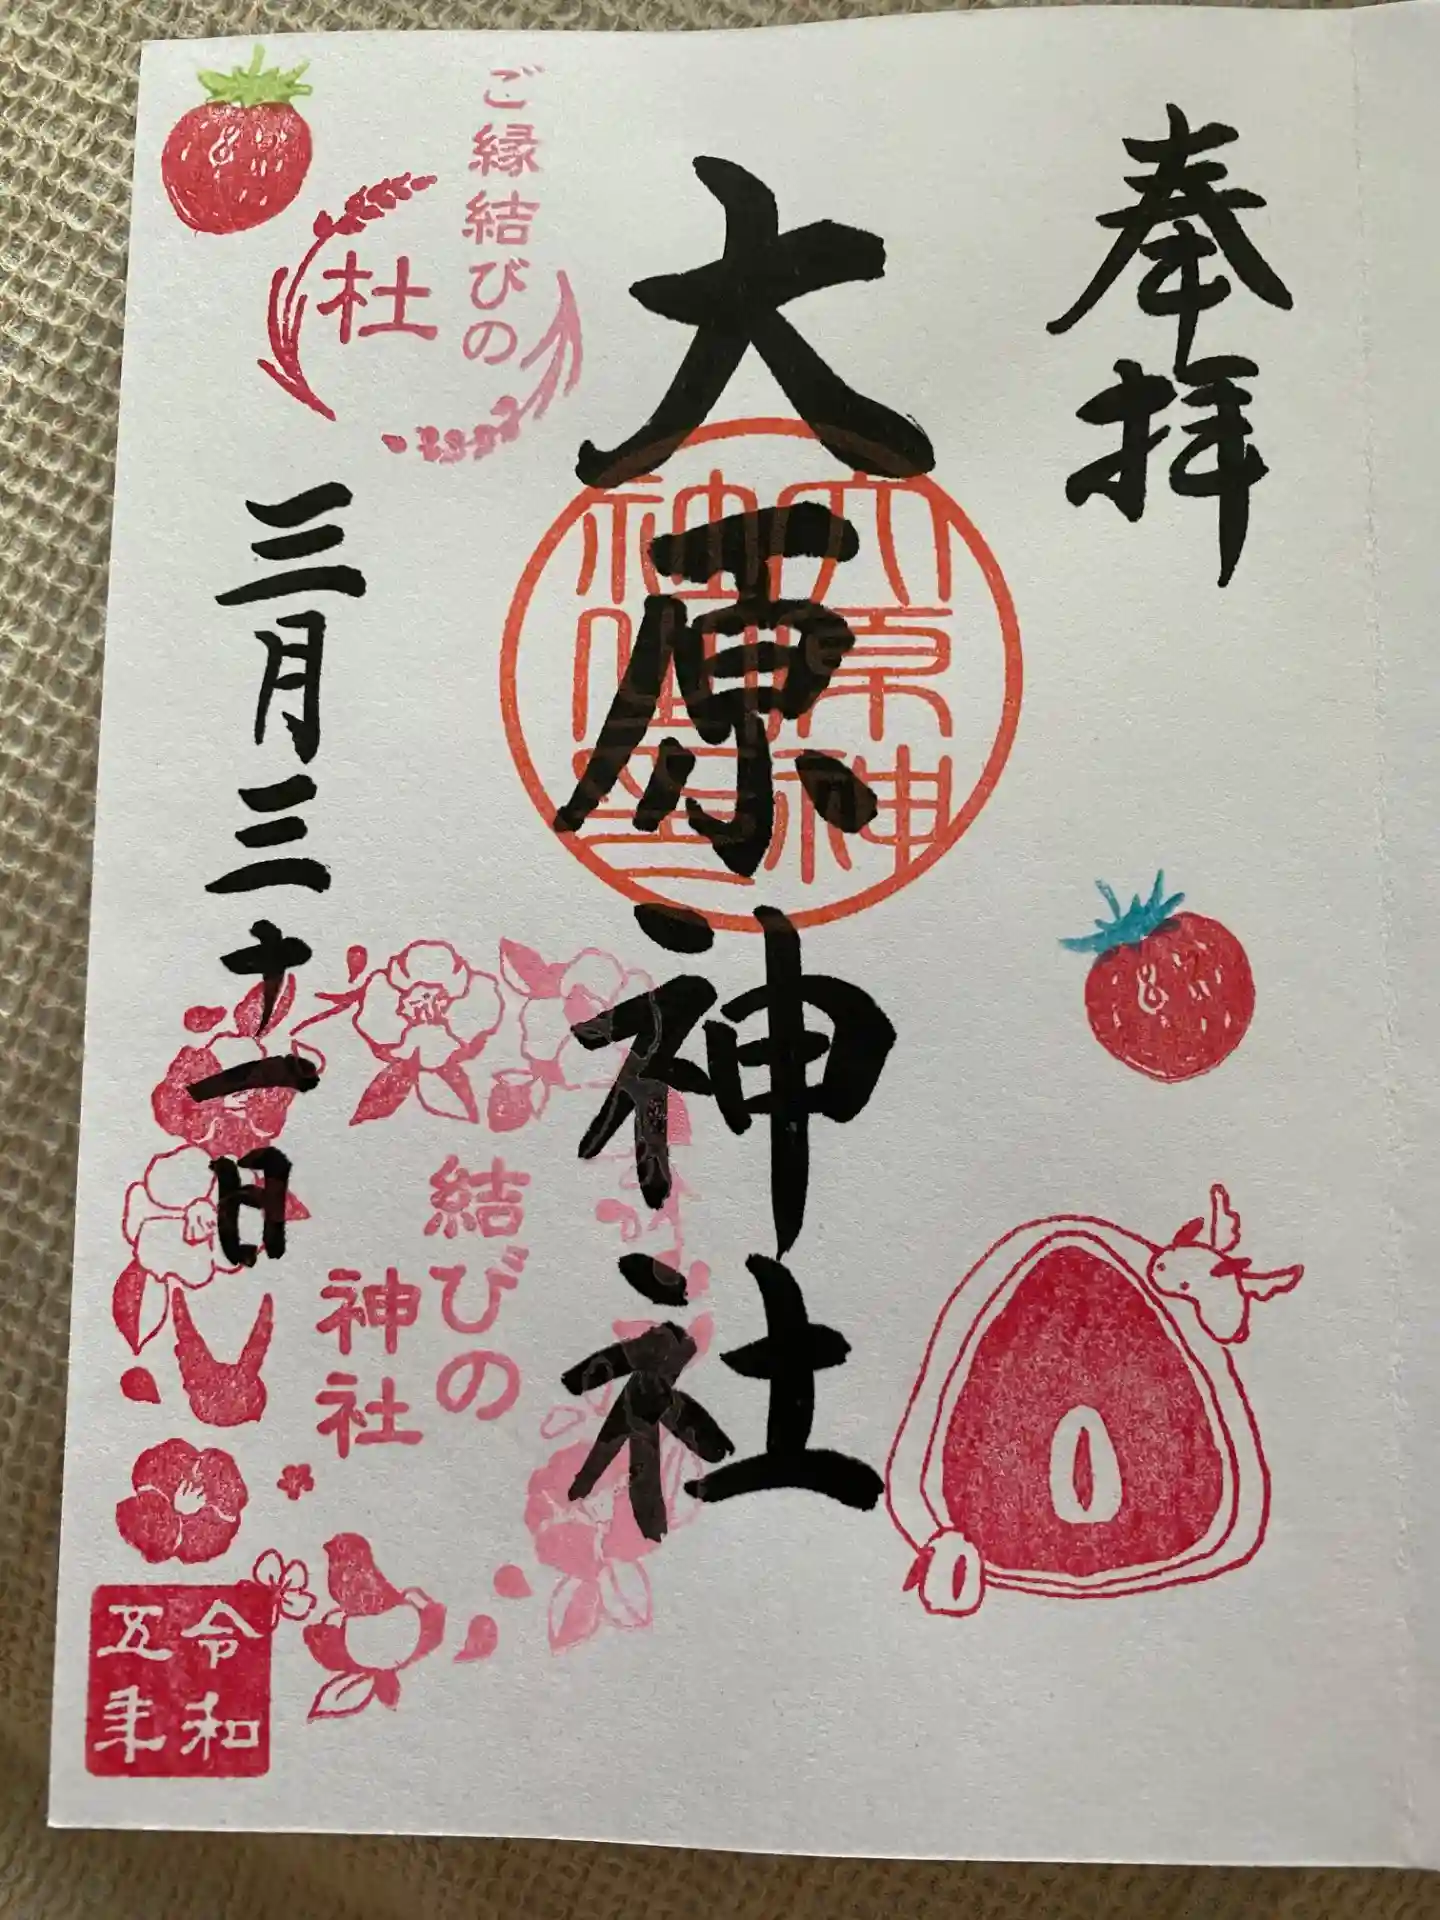 奉拝
大原神社
大原神社印
ご縁結びの
杜
三月三十一日
結びの
神社
令和
五年